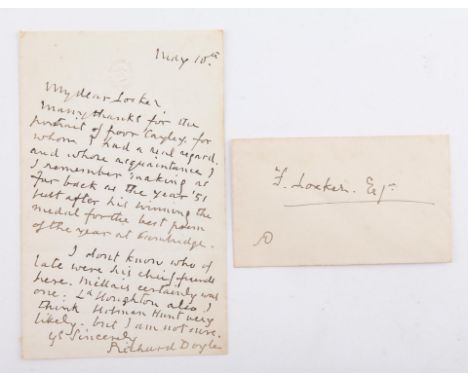 May 10th
My dear Locker,
Many thanks for the
portrait of poor Cayley, for
whom I had a real regard,
and whose acquaintance I
I remember making as
far back as the year '51
just after his winning the
medal for the best poem
of the year at Cambridge.
I don't know who of
late were his chief friends
here. Millais certainly was
one. Ld Houghton also I
think Holman Hunt very
likely. but I am not sure.
Yrs Sincerely
Richard Doyle
F. Locker. Esqr
D